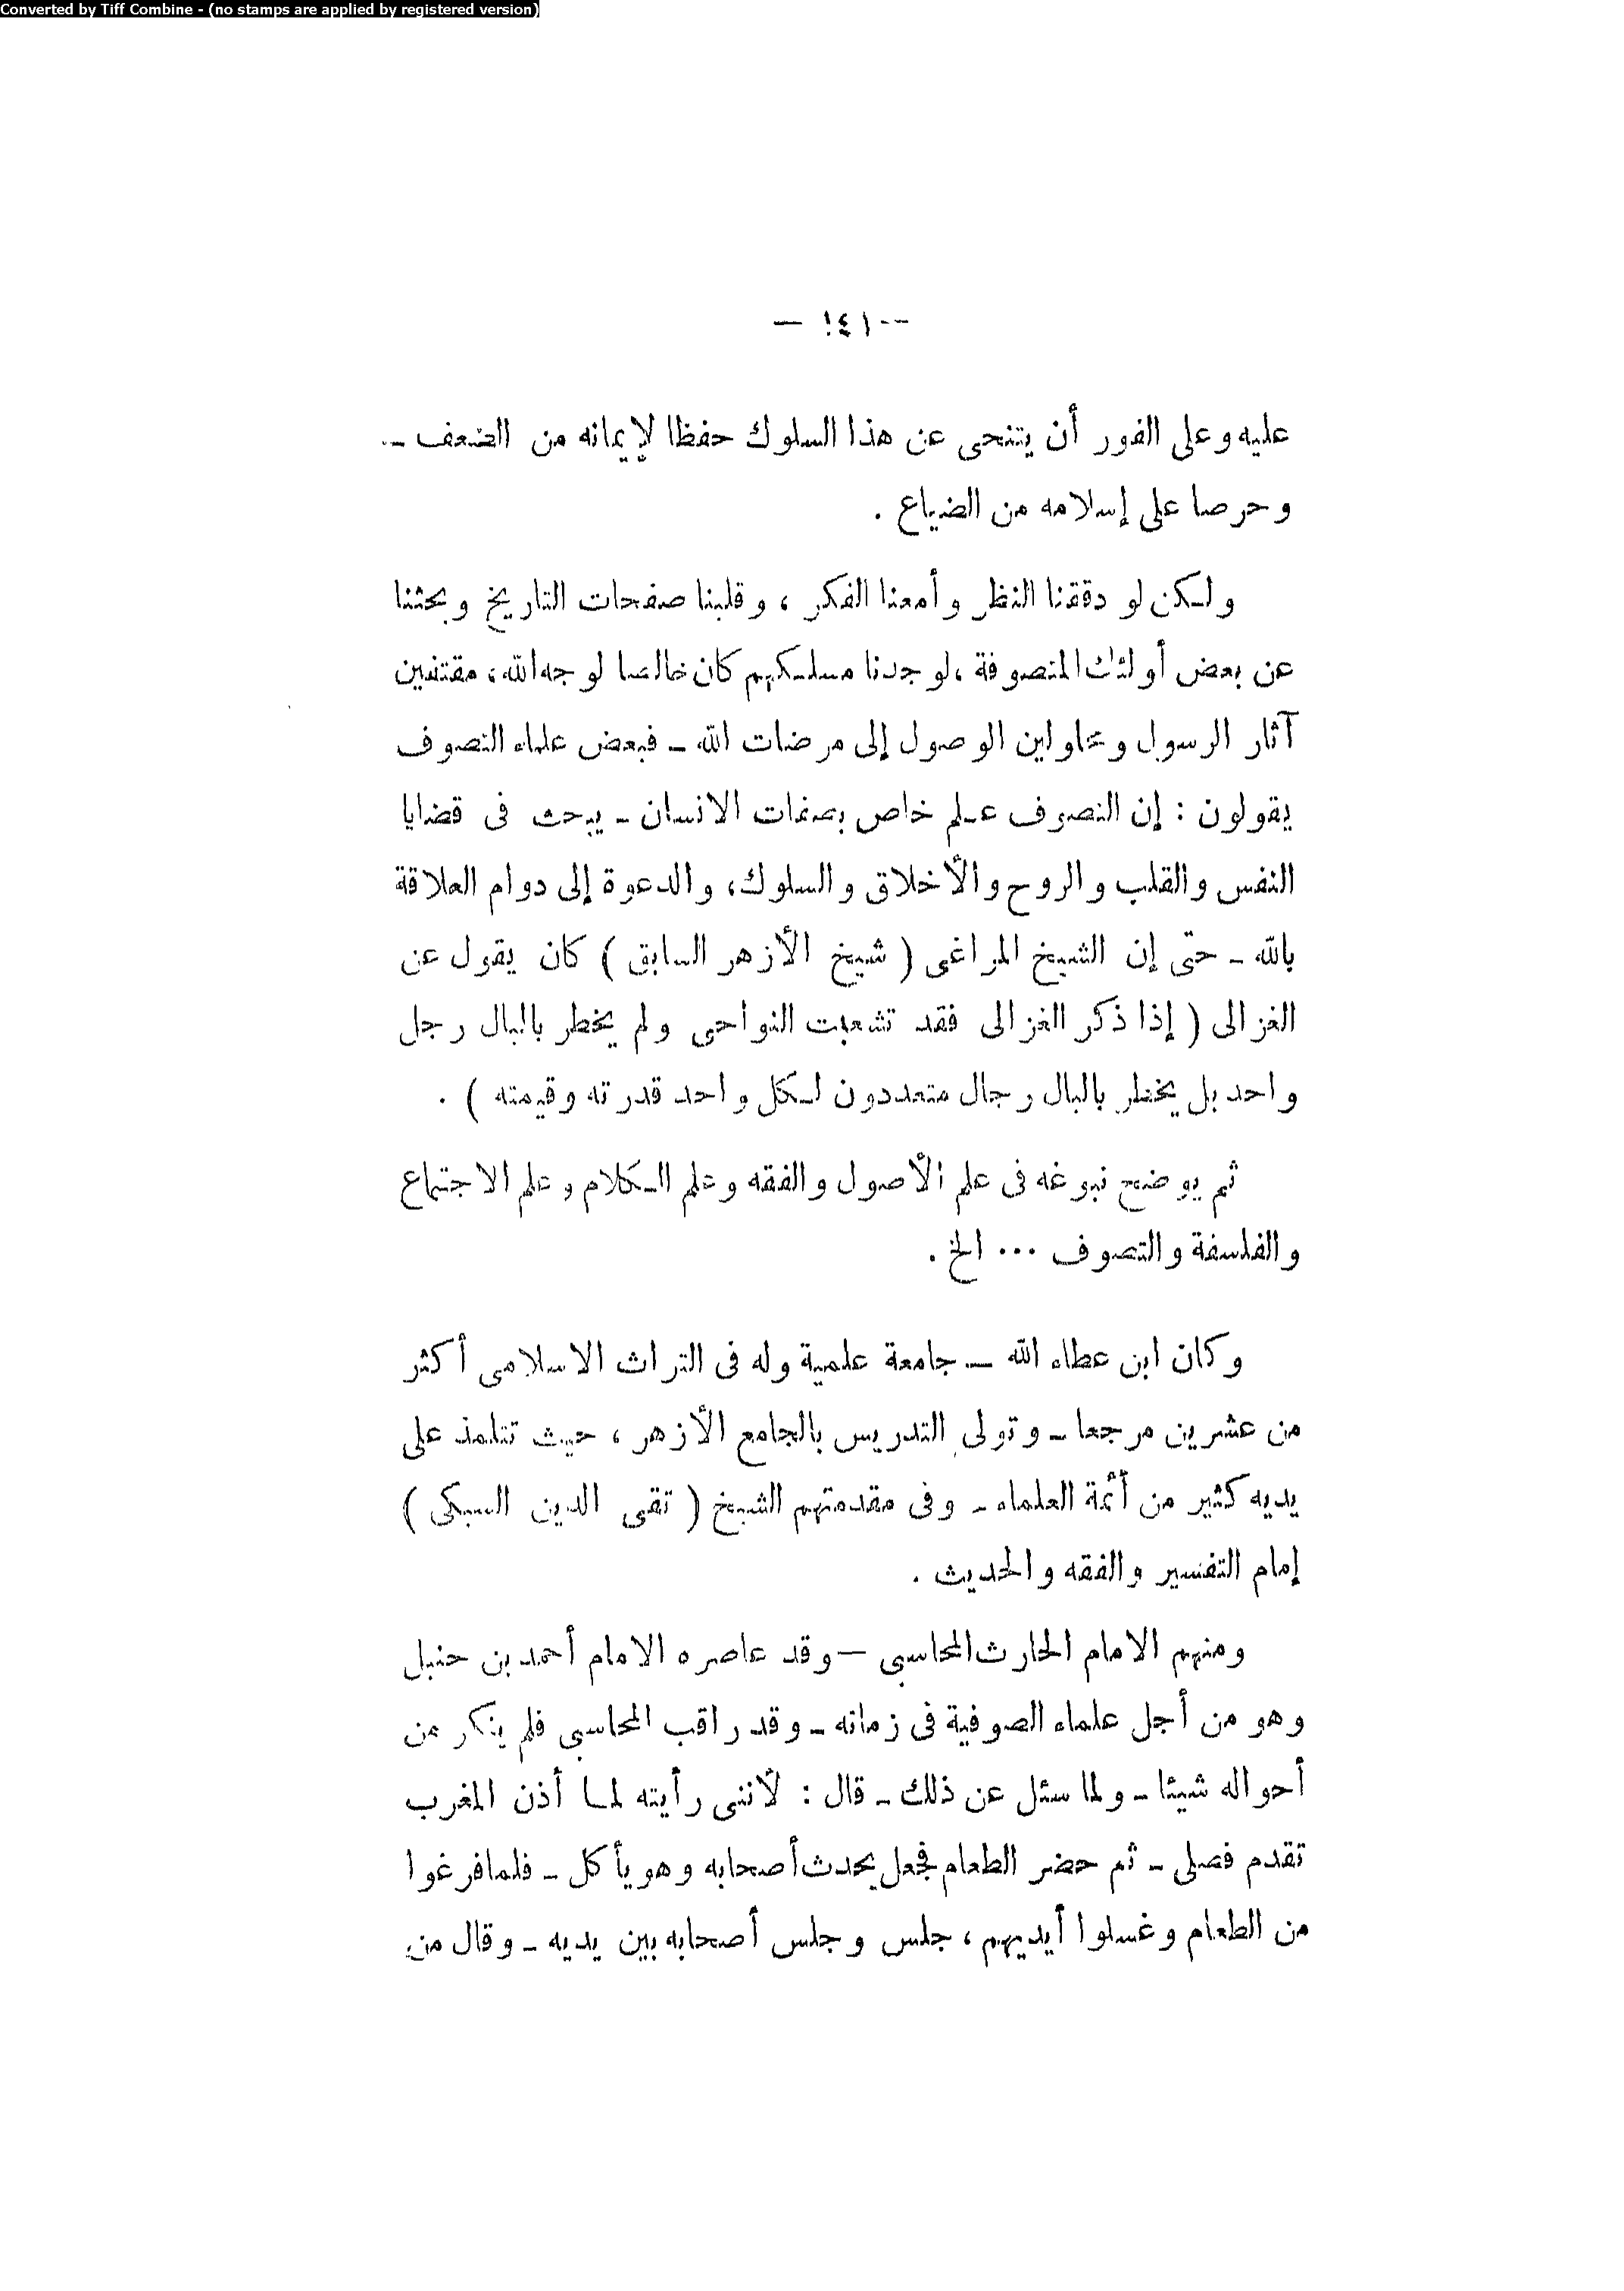 Converted by Tiff Combine - (no stamps are applied by registered version)
— ١٤١ —
عليه وعلى الفور أن يتنحى عن هذا السلوك حفظا لإيمانه من الضعف ـ
وحرصا على إسلامه من الضياع .
ولكن لو دققنا النظر وأمعنا الفكر ، وقلبنا صفحات التاريخ وبحثنا
عن بعض أولئك المتصوفة ، لوجدنا مسلكهم كان خالصا لوجه الله ، مقتفين
آثار الرسول ومحاولين الوصول إلى مرضات الله ـ فبعض علماء التصوف
يقولون : إن التصوف علم خاص بصفات الانسان ـ يبحث فى قضايا
النفس والقلب والروح والأخلاق والسلوك ، والدعوة إلى دوام العلاقة
بالله ـ حتى إن الشيخ المراغى ( شيخ الأزهر السابق ) كان يقول عن
الغزالى ( إذا ذكر الغزالى فقد تشعبت النواحى ولم يخطر بالبال رجل
واحد بل يخطر بالبال رجال متعددون لكل واحد قدرته وقيمته ) .
ثم يوضح نبوغه فى علم الأصول والفقه وعلم الكلام وعلم الاجتماع
والفلسفة والتصوف ... الخ .
وكان ابن عطاء الله ــ جامعة علمية وله فى التراث الاسلامى أكثر
من عشرين مرجعا ـ وتولى التدريس بالجامع الأزهر ، حيث تتلمذ على
يديه كثير من أئمة العلماء ـ وفى مقدمتهم الشيخ ( تقى الدين السبكى )
إمام التفسير والفقه والحديث .
ومنهم الامام الحارث المحاسبى — وقد عاصره الامام أحمد بن حنبل
وهو من أجل علماء الصوفية فى زمانه ـ وقد راقب المحاسبى فلم ينكر من
أحواله شيئا ـ ولما سئل عن ذلك ـ قال : لأننى رأيته لما أذن المغرب
تقدم فصلى ـ ثم حضر الطعام فجعل يحدث أصحابه وهو يأكل ـ فلما فرغوا
من الطعام وغسلوا أيديهم ، جلس وجلس أصحابه بين يديه ـ وقال من